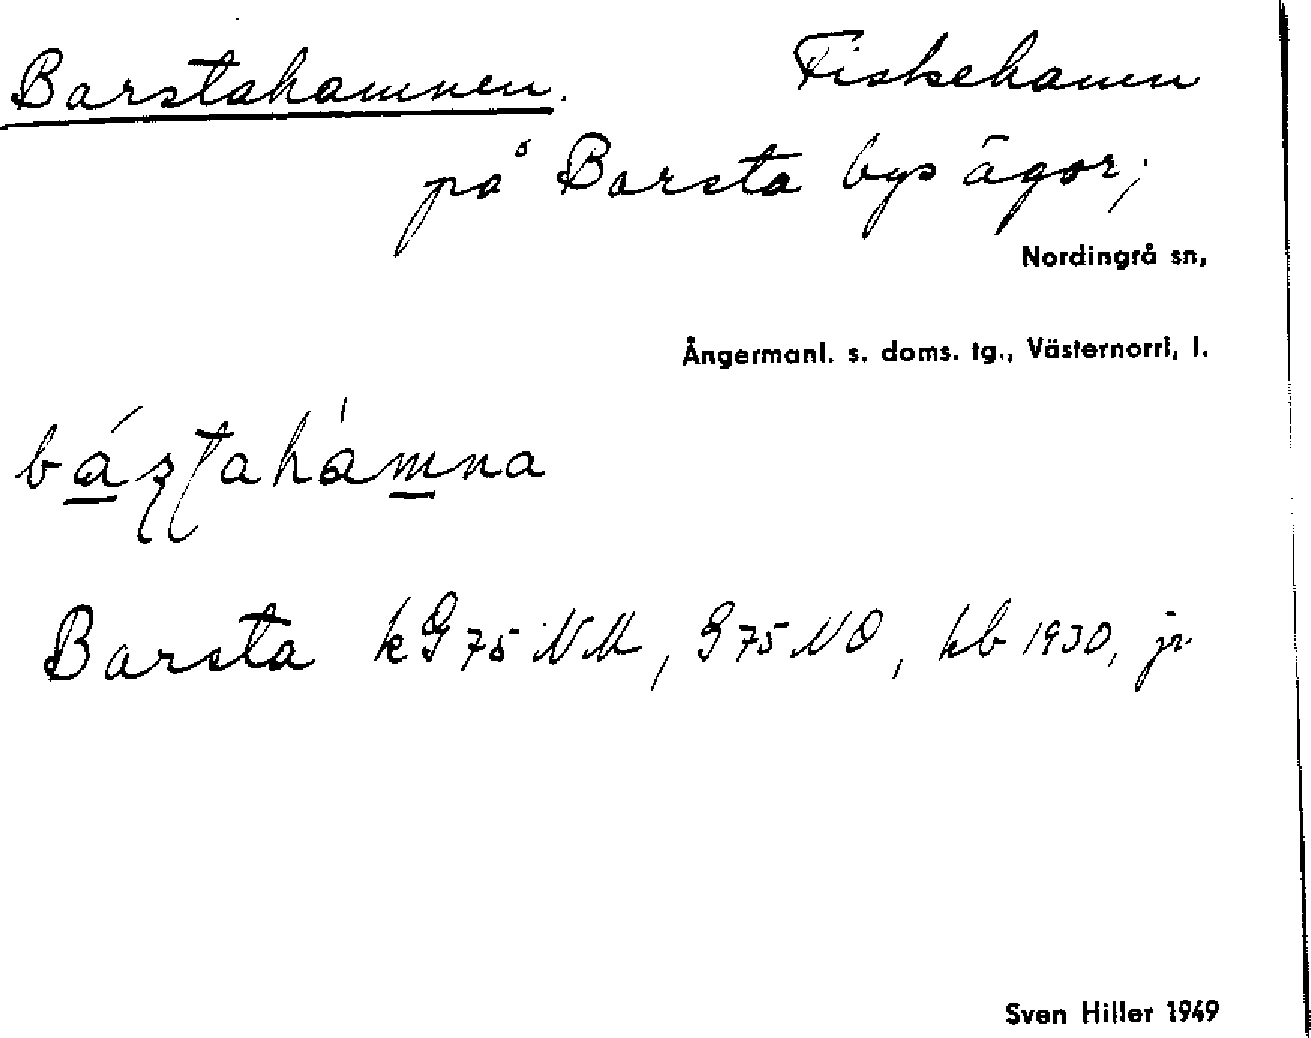 Barstahamnen. Fiskehamn
på Barsta bys ägor;
Nordingrå sn,
Ångermanl. s. doms. tg., Västernorrl, l.
Barsta kG 75 NM, G 75 NO, hb 1930, jr
Sven Hiller 1949